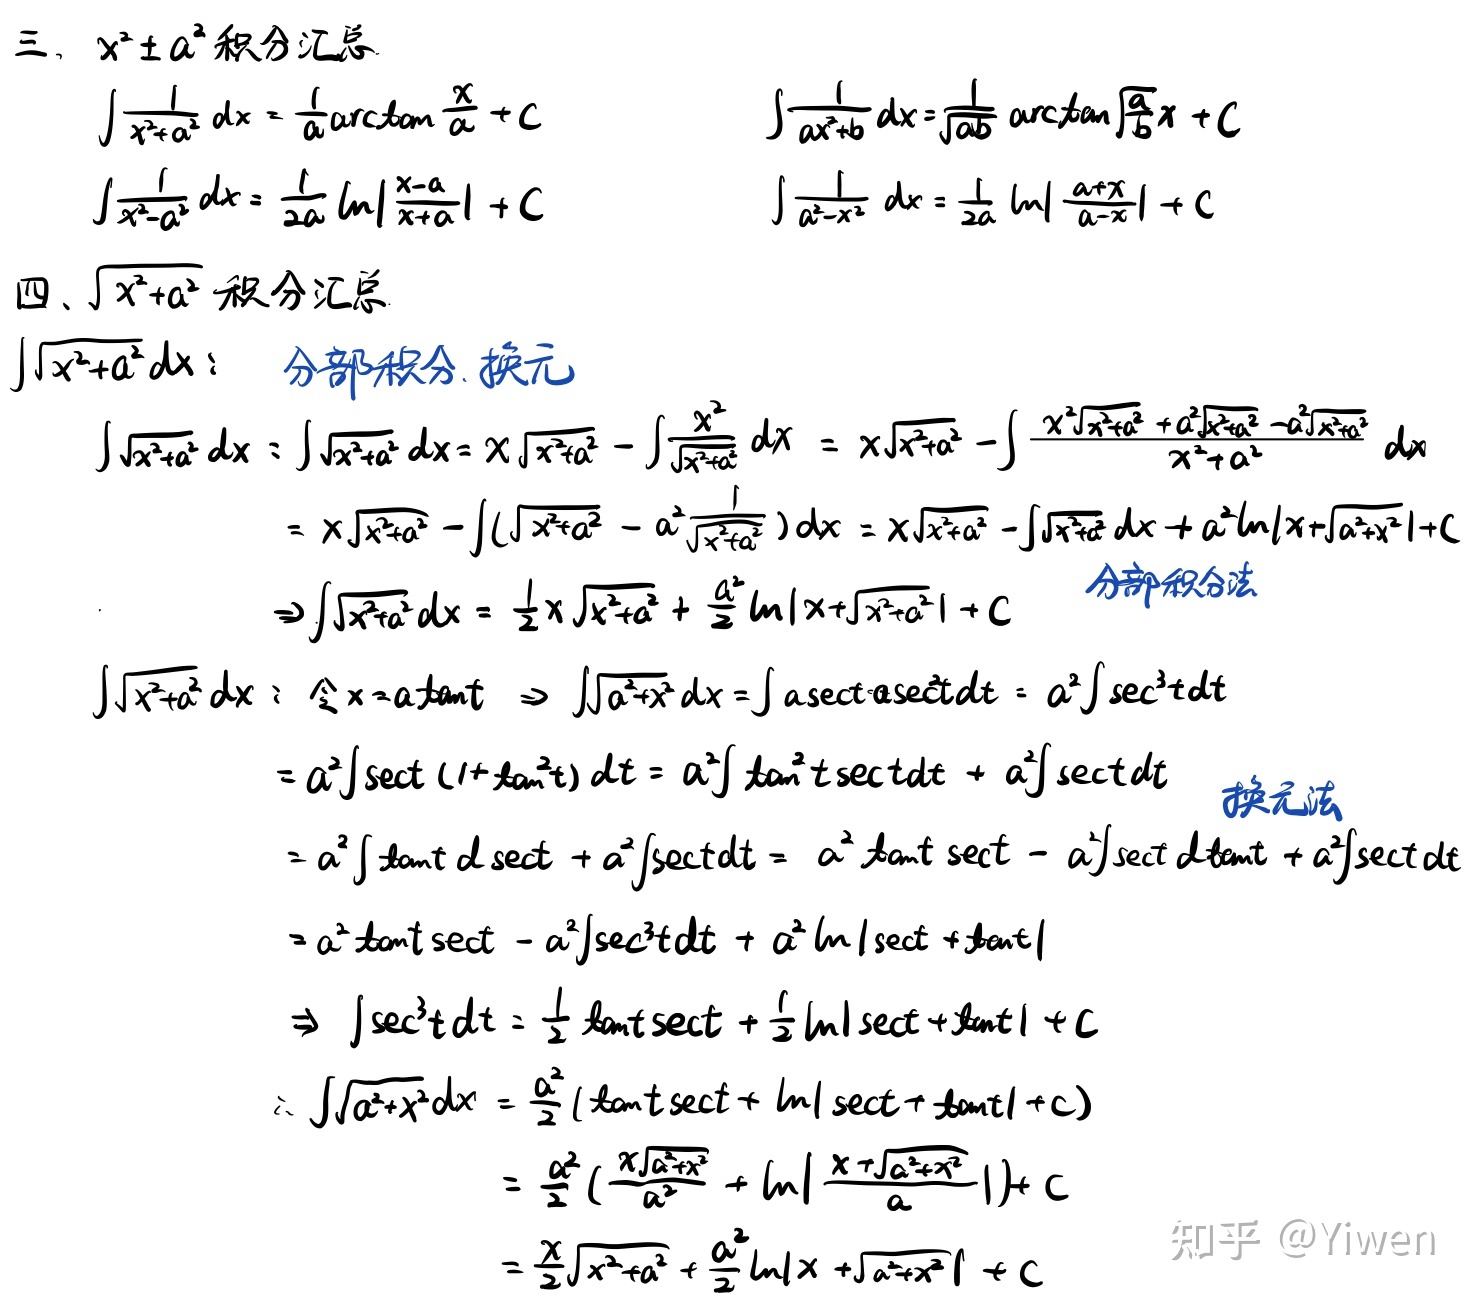 三、x²±a²积分汇总
∫1/(x²+a²) dx = 1/a arctan x/a + C
∫1/(ax²+b) dx = 1/√(ab) arctan √(a/b) x + C
∫1/(x²-a²) dx = 1/2a ln|(x-a)/(x+a)| + C
∫1/(a²-x²) dx = 1/2a ln|(a+x)/(a-x)| + C
四、√(x²+a²) 积分汇总
∫√(x²+a²) dx: 分部积分、换元
∫√(x²+a²) dx : ∫√(x²+a²) dx = x√(x²+a²) - ∫x²/√(x²+a²) dx = x√(x²+a²) - ∫(x²√(x²+a²) + a²√(x²+a²) - a²√(x²+a²))/(x²+a²) dx
= x√(x²+a²) - ∫(√(x²+a²) - a² 1/√(x²+a²)) dx = x√(x²+a²) - ∫√(x²+a²) dx + a² ln|x+√(a²+x²)| + C
分部积分法
⇒ ∫√(x²+a²) dx = 1/2 x√(x²+a²) + a²/2 ln|x+√(x²+a²)| + C
∫√(x²+a²) dx : 令x=a tant ⇒ ∫√(a²+x²) dx = ∫a sect·a sec²t dt = a²∫sec³t dt
= a²∫sect (1+tan²t) dt = a²∫tan²t sect dt + a²∫sect dt
换元法
= a²∫tant d sect + a²∫sect dt = a² tant sect - a²∫sect d tant + a²∫sect dt
= a² tant sect - a²∫sec³t dt + a² ln|sect + tant|
⇒ ∫sec³t dt = 1/2 tant sect + 1/2 ln|sect + tant| + C
∴ ∫√(a²+x²) dx = a²/2 (tant sect + ln|sect + tant| + C)
= a²/2 (x√(a²+x²)/a² + ln|(x+√(a²+x²))/a|) + C
= x/2 √(x²+a²) + a²/2 ln|x+√(a²+x²)| + C
知乎 @Yiwen